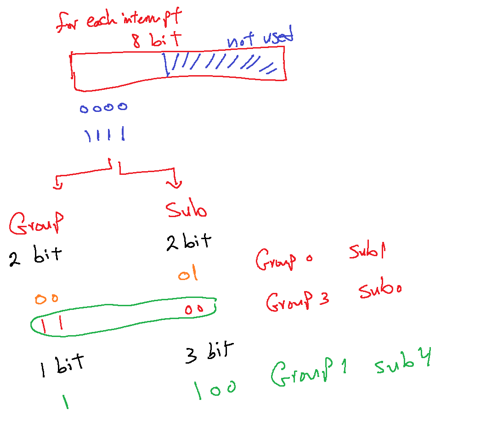 for each interrupt
8 bit not used
0000
1111
Group Sub
2 bit 2 bit
00 01 Group 0 Sub1
11 00 Group 3 Sub0
1 bit 3 bit
1 100 Group 1 Sub 4